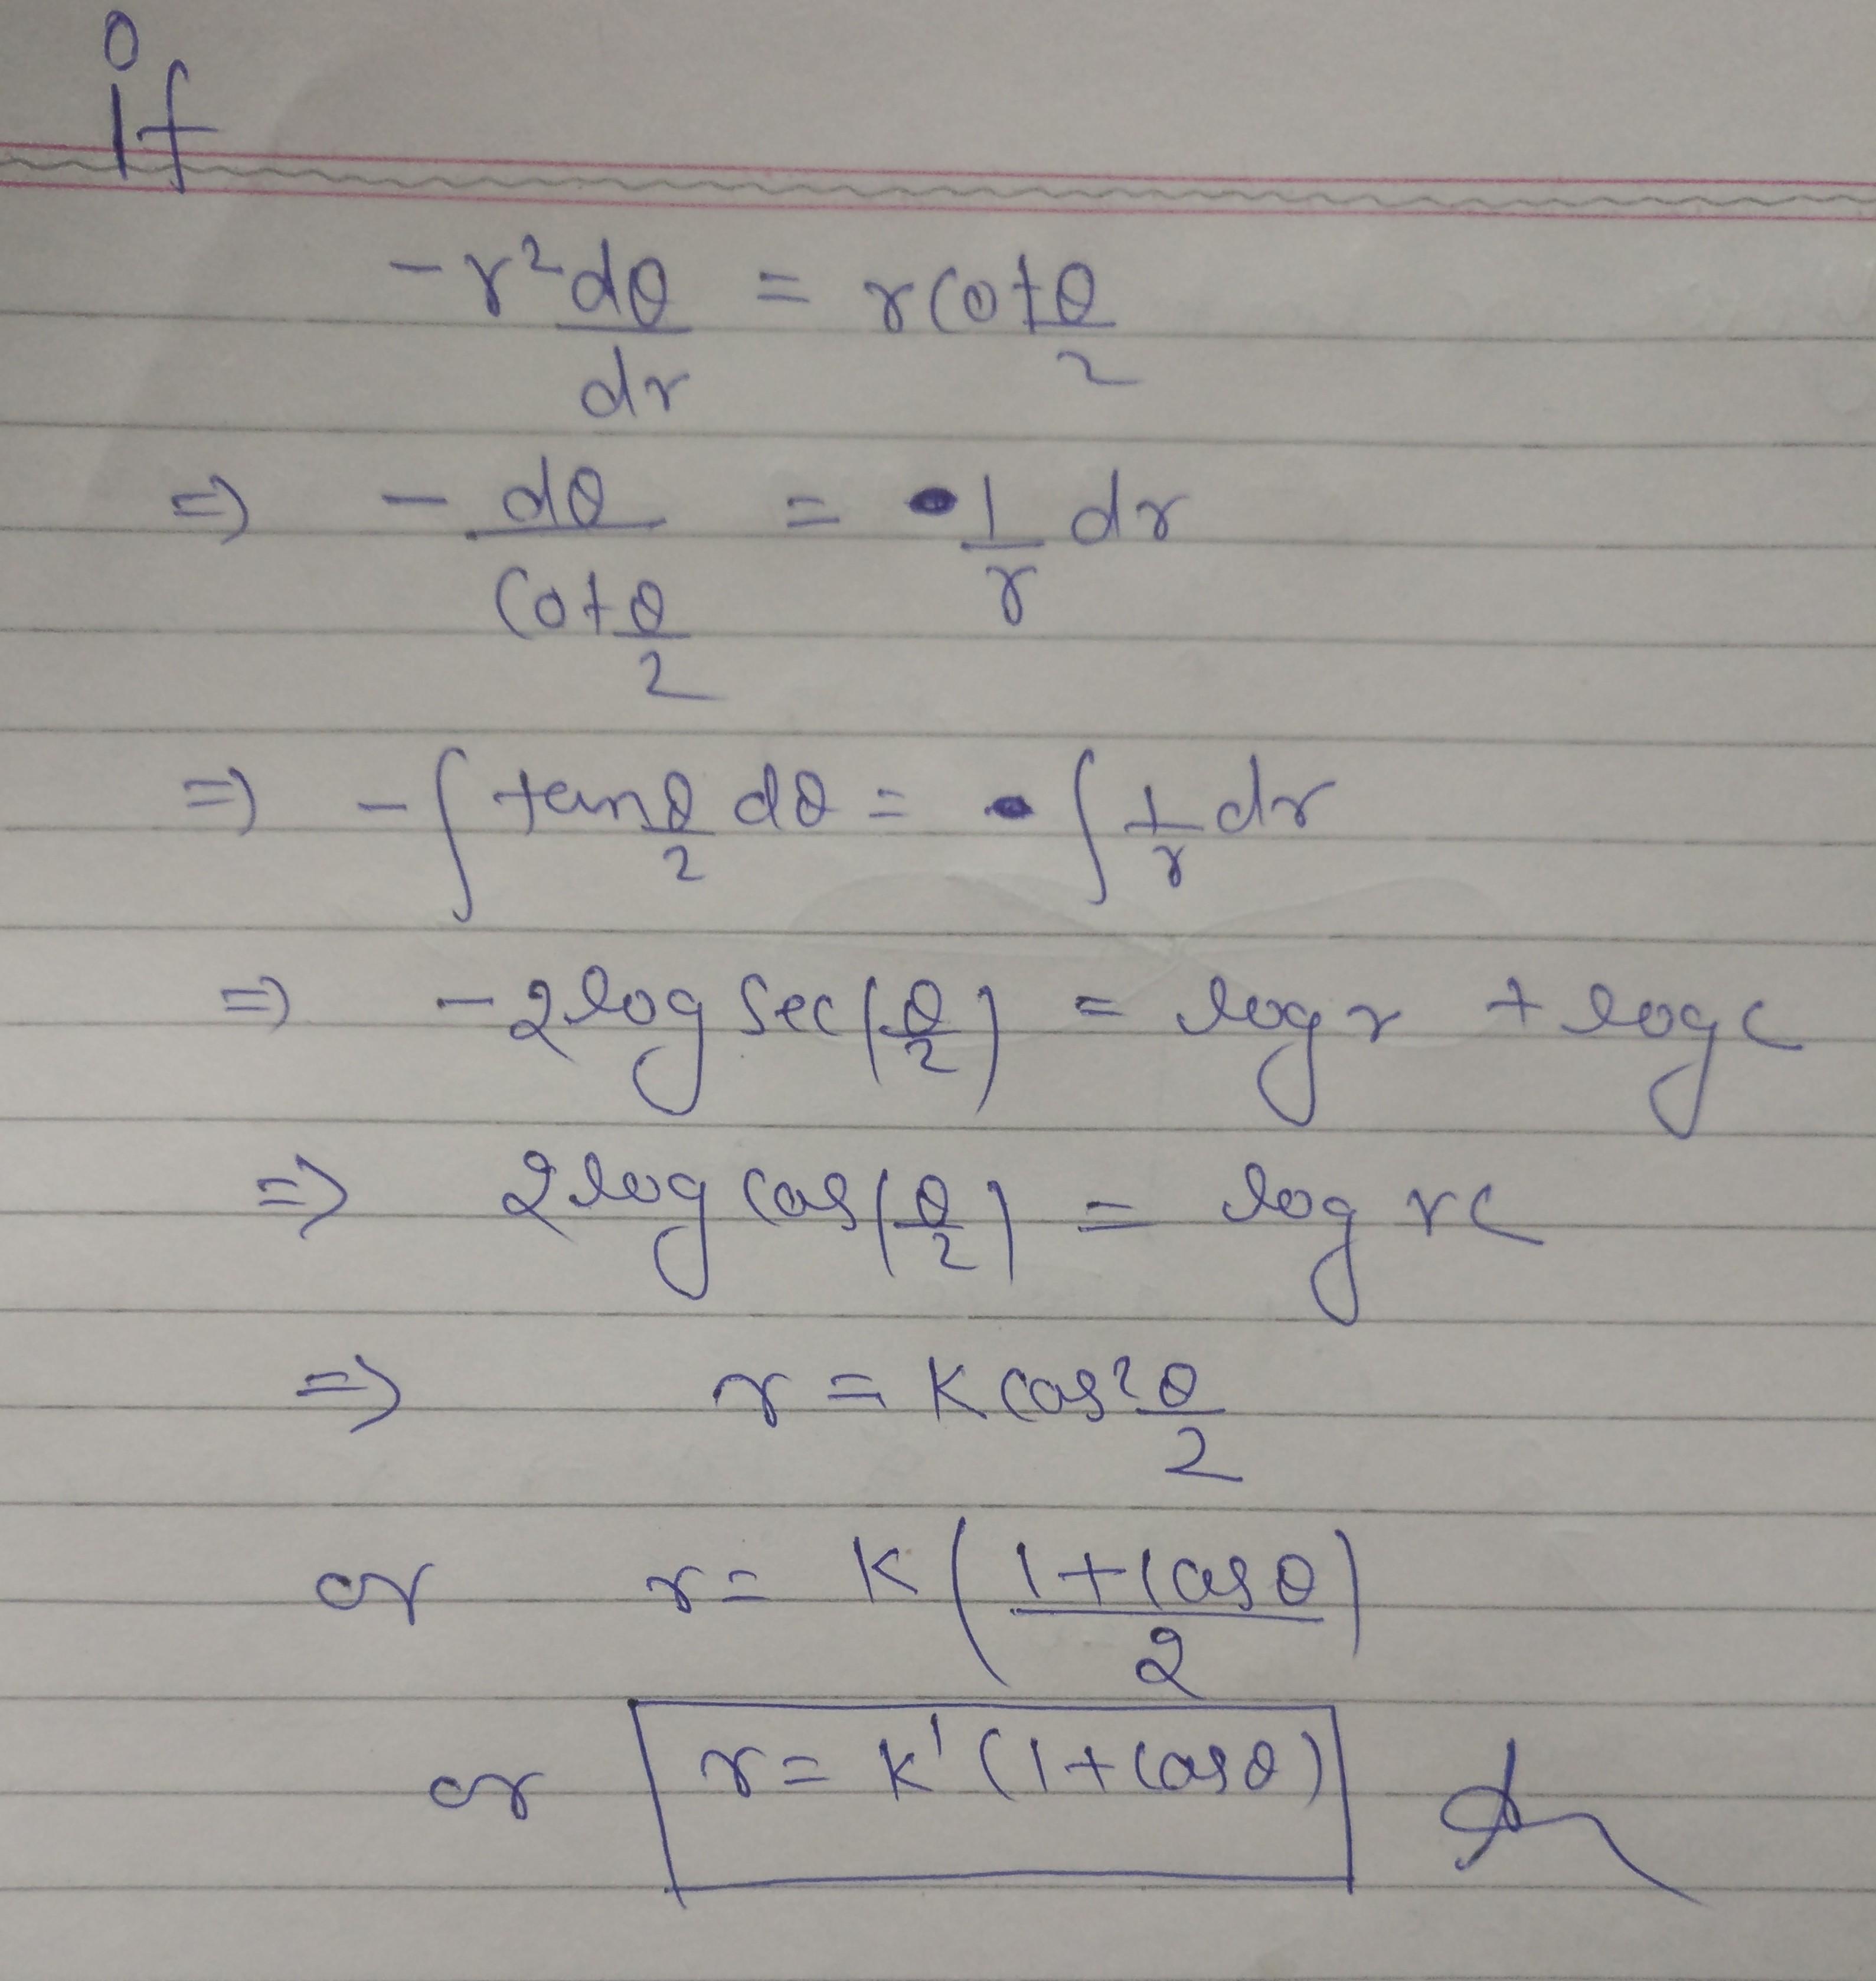 if
-r² dθ/dr = r cot θ/2
=> - dθ/cot θ/2 = 1/r dr
=> -∫ tan θ/2 dθ = ∫ 1/r dr
=> -2 log sec(θ/2) = log r + log c
=> 2 log cos(θ/2) = log rc
=> r = K cos² θ/2
or r = K (1+cosθ/2)
or r = K' (1+cosθ)